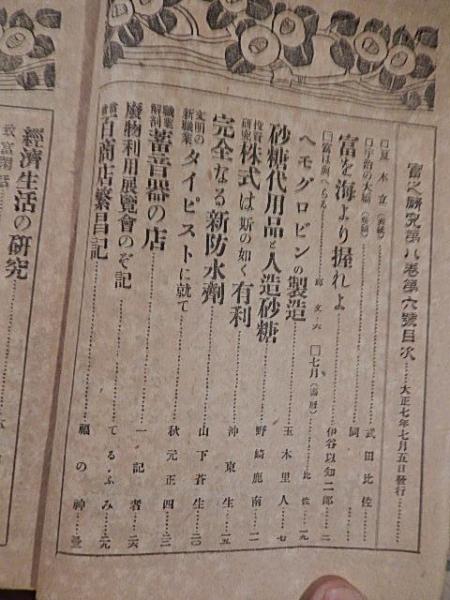 富之研究第八卷第六號目次……大正七年七月五日發行……
□夏木立(表紙)……武田比佐
□宇治の大橋……同
富を海より握れよ……伊谷以知二郎…二
□七月(漫曆)……比佐…一九
ヘモグロビンの製造……玉木里人…七
砂糖代用品と人造砂糖……野崎鹿南…一二
投資研究 株式は斯の如く有利……沖東生…一五
完全なる新防水劑……山下蒼生…二〇
文明の新職業 タイピストに就て……秋元正四…二二
職業解剖 蓄音器の店……一記者…二六
廢物利用展覽會のぞ記……てるふみ…二九
百商店繁昌記……福の神
經濟生活の硏究